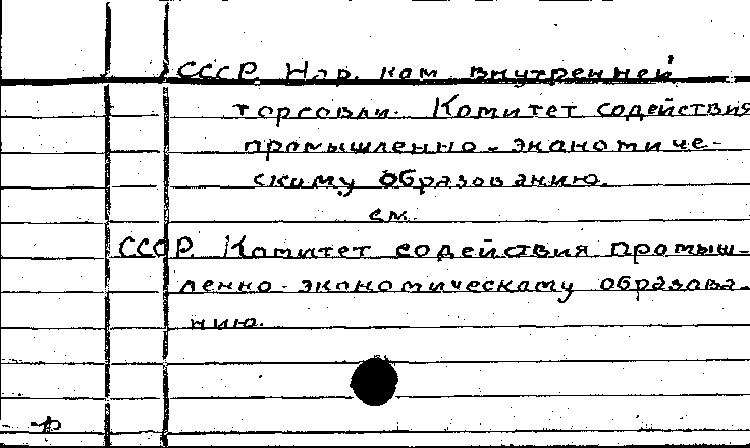 СССР. Нар. ком. внутренней
торговли. Комитет содействия
промышленно-экономиче-
скому образованию.
см.
СССР. Комитет содействия промыш-
ленно-экономическому образова-
нию.